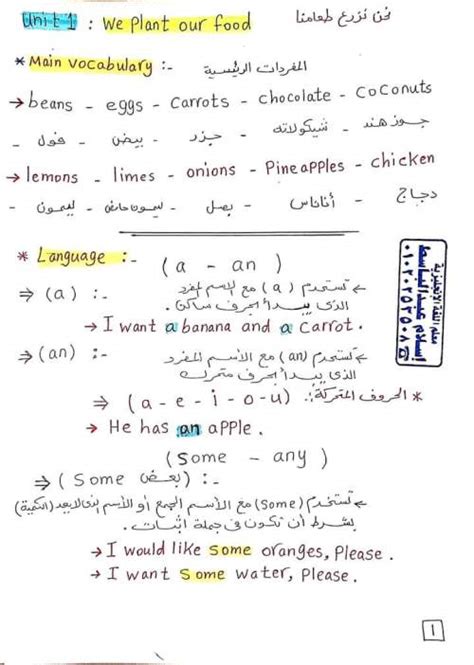 Unit 1 : We Plant our food نحن نزرع طعامنا
* Main vocabulary :- المفردات الرئيسية
→ beans - eggs - carrots - chocolate - coconuts
فول - بيض - جزر - شيكولاته - جوز هند
→ lemons - limes - onions - Pineapples - chicken
ليمون - ليمون حامض - بصل - أناناس - دجاج
* Language :- (a - an)
⇒ (a) :- تستخدم (a) مع الاسم المفرد
الذى يبدأ بحرف ساكن.
→ I want a banana and a carrot.
⇒ (an) :- تستخدم (an) مع الأسم المفرد
الذى يبدأ بحرف متحرك
* الحروف المتحركة: (a - e - i - o - u)
→ He has an apple.
(some - any)
⇒ (some بعض) :-
تستخدم (some) مع الأسم الجمع أو الأسم الذى لا يعد (الكمية)
بشرط أن تكون فى جملة اثبات.
→ I would like some oranges, Please.
→ I want some water, Please.
معلم اللغة الانجليزية
إسلام عبدالباسط
1